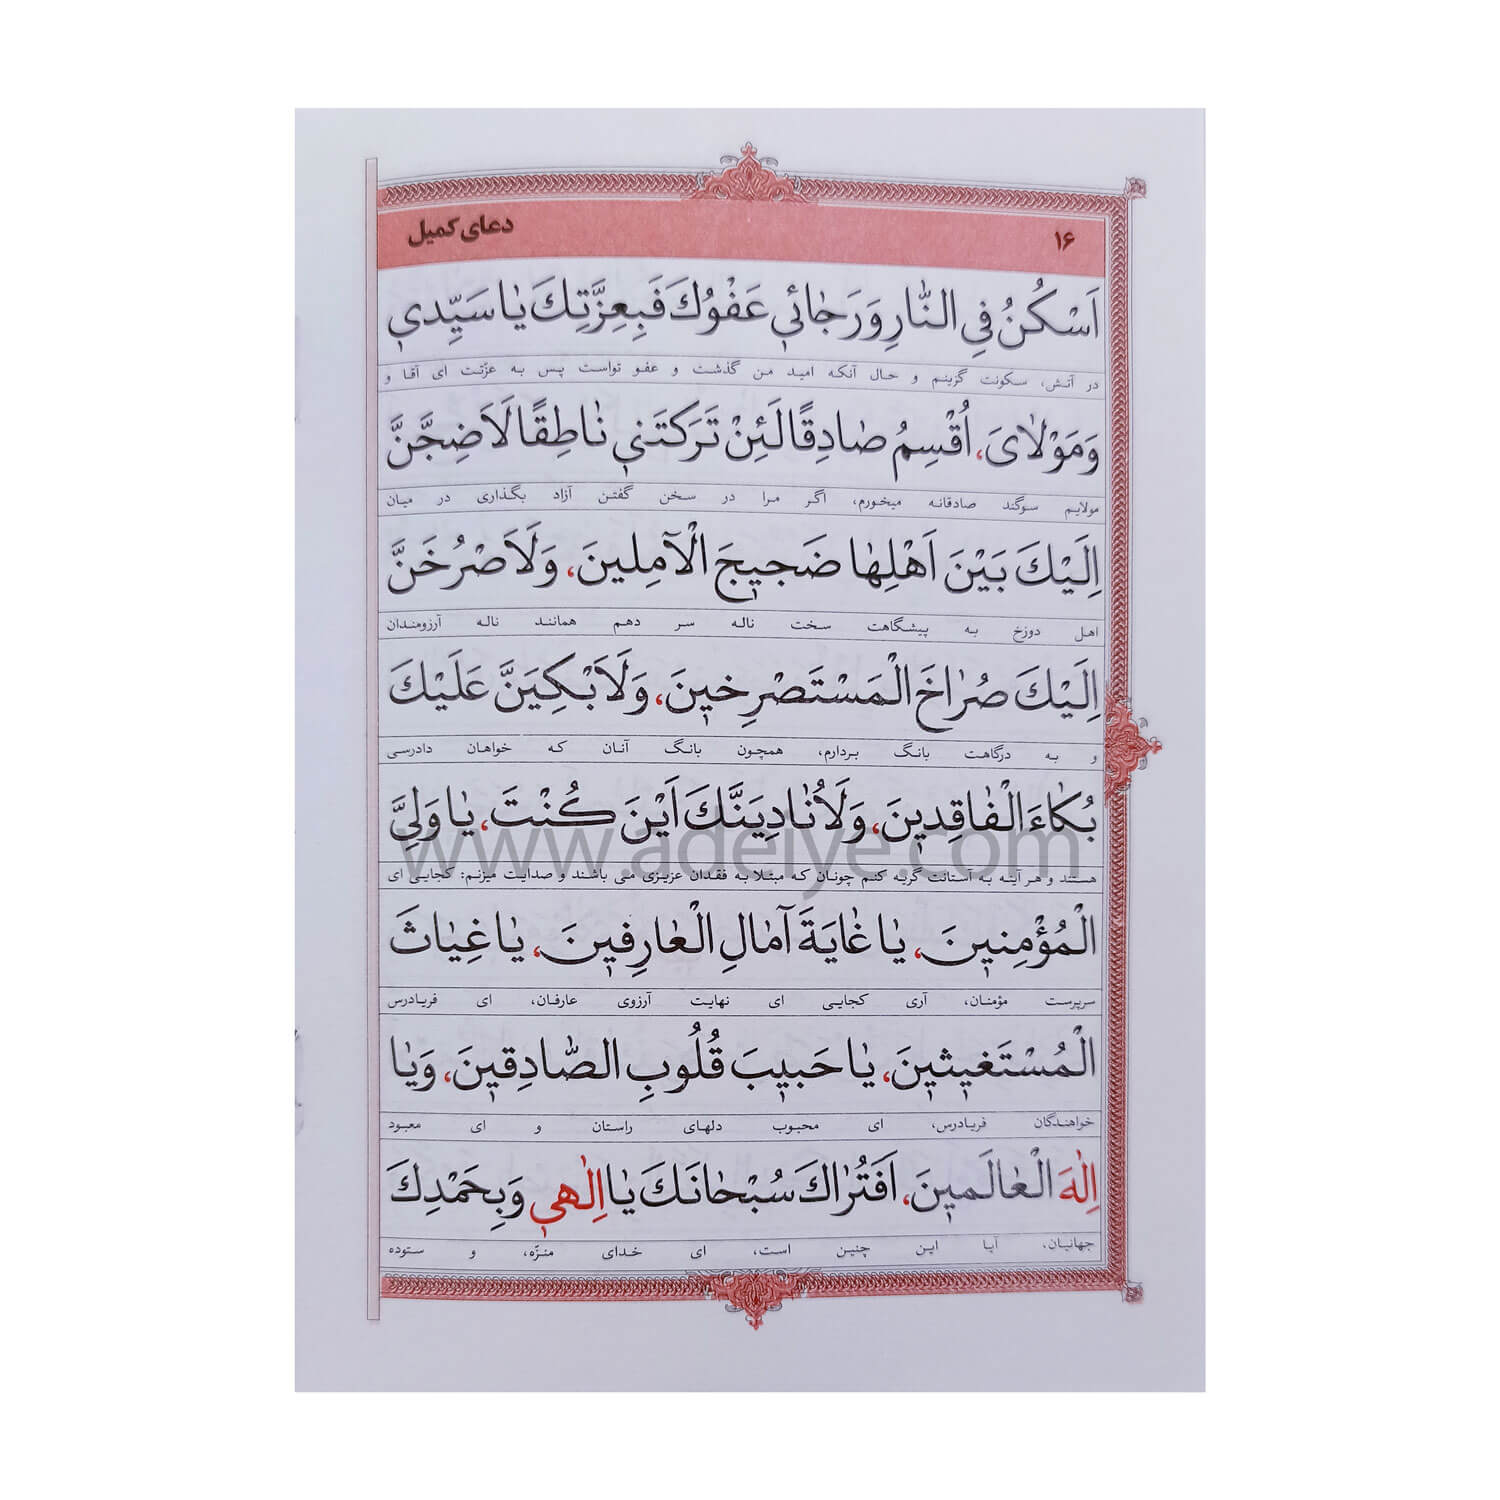 ۱۶ دعای کمیل
اَسْکُنُ فِی النّٰارِ وَ رَجٰائی عَفْوُکَ فَبِعِزَّتِکَ یٰا سَیِّدی
در آتش، سکونت گزینم و حال آنکه امید من گذشت و عفو تواست پس به عزّتت ای آقا و
وَ مَوْلٰایَ، اُقْسِمُ صٰادِقًا لَئِنْ تَرَکْتَنی نٰاطِقًا لَاَضِجَّنَّ
مولایم سوگند صادقانه میخورم، اگر مرا در سخن گفتن آزاد بگذاری در میان
اِلَیْکَ بَیْنَ اَهْلِهٰا ضَجیجَ الْآمِلینَ، وَ لَاَصْرُخَنَّ
اهل دوزخ به پیشگاهت سخت ناله سر دهم همانند ناله آرزومندان
اِلَیْکَ صُرٰاخَ الْمَسْتَصْرِخینَ، وَ لَاَبْکِیَنَّ عَلَیْکَ
و به درگاهت بانگ بردارم، همچون بانگ آنان که خواهان دادرسی
بُکٰاءَ الْفٰاقِدینَ، وَ لَاُنٰادِیَنَّکَ اَیْنَ کُنْتَ، یٰا وَلِیَّ
هستند و هر آینه به آستانت گریه کنم چونان که مبتلا به فقدان عزیزی می باشند و صدایت میزنم: کجایی ای
الْمُؤْمِنینَ، یٰا غٰایَةَ آمٰالِ الْعٰارِفینَ، یٰا غِیٰاثَ
سرپرست مؤمنان، آری کجایی ای نهایت آرزوی عارفان، ای فریادرس
الْمُسْتَغیثینَ، یٰا حَبیبَ قُلُوبِ الصّٰادِقینَ، وَ یٰا
خواهندگان فریادرس، ای محبوب دلهای راستان و ای معبود
اِلٰهَ الْعٰالَمینَ، اَفَتُرٰاکَ سُبْحٰانَکَ یٰا اِلٰهی وَ بِحَمْدِکَ
جهانیان. آیا این چنین است، ای خدای منزّه، و ستوده
www.adelye.com